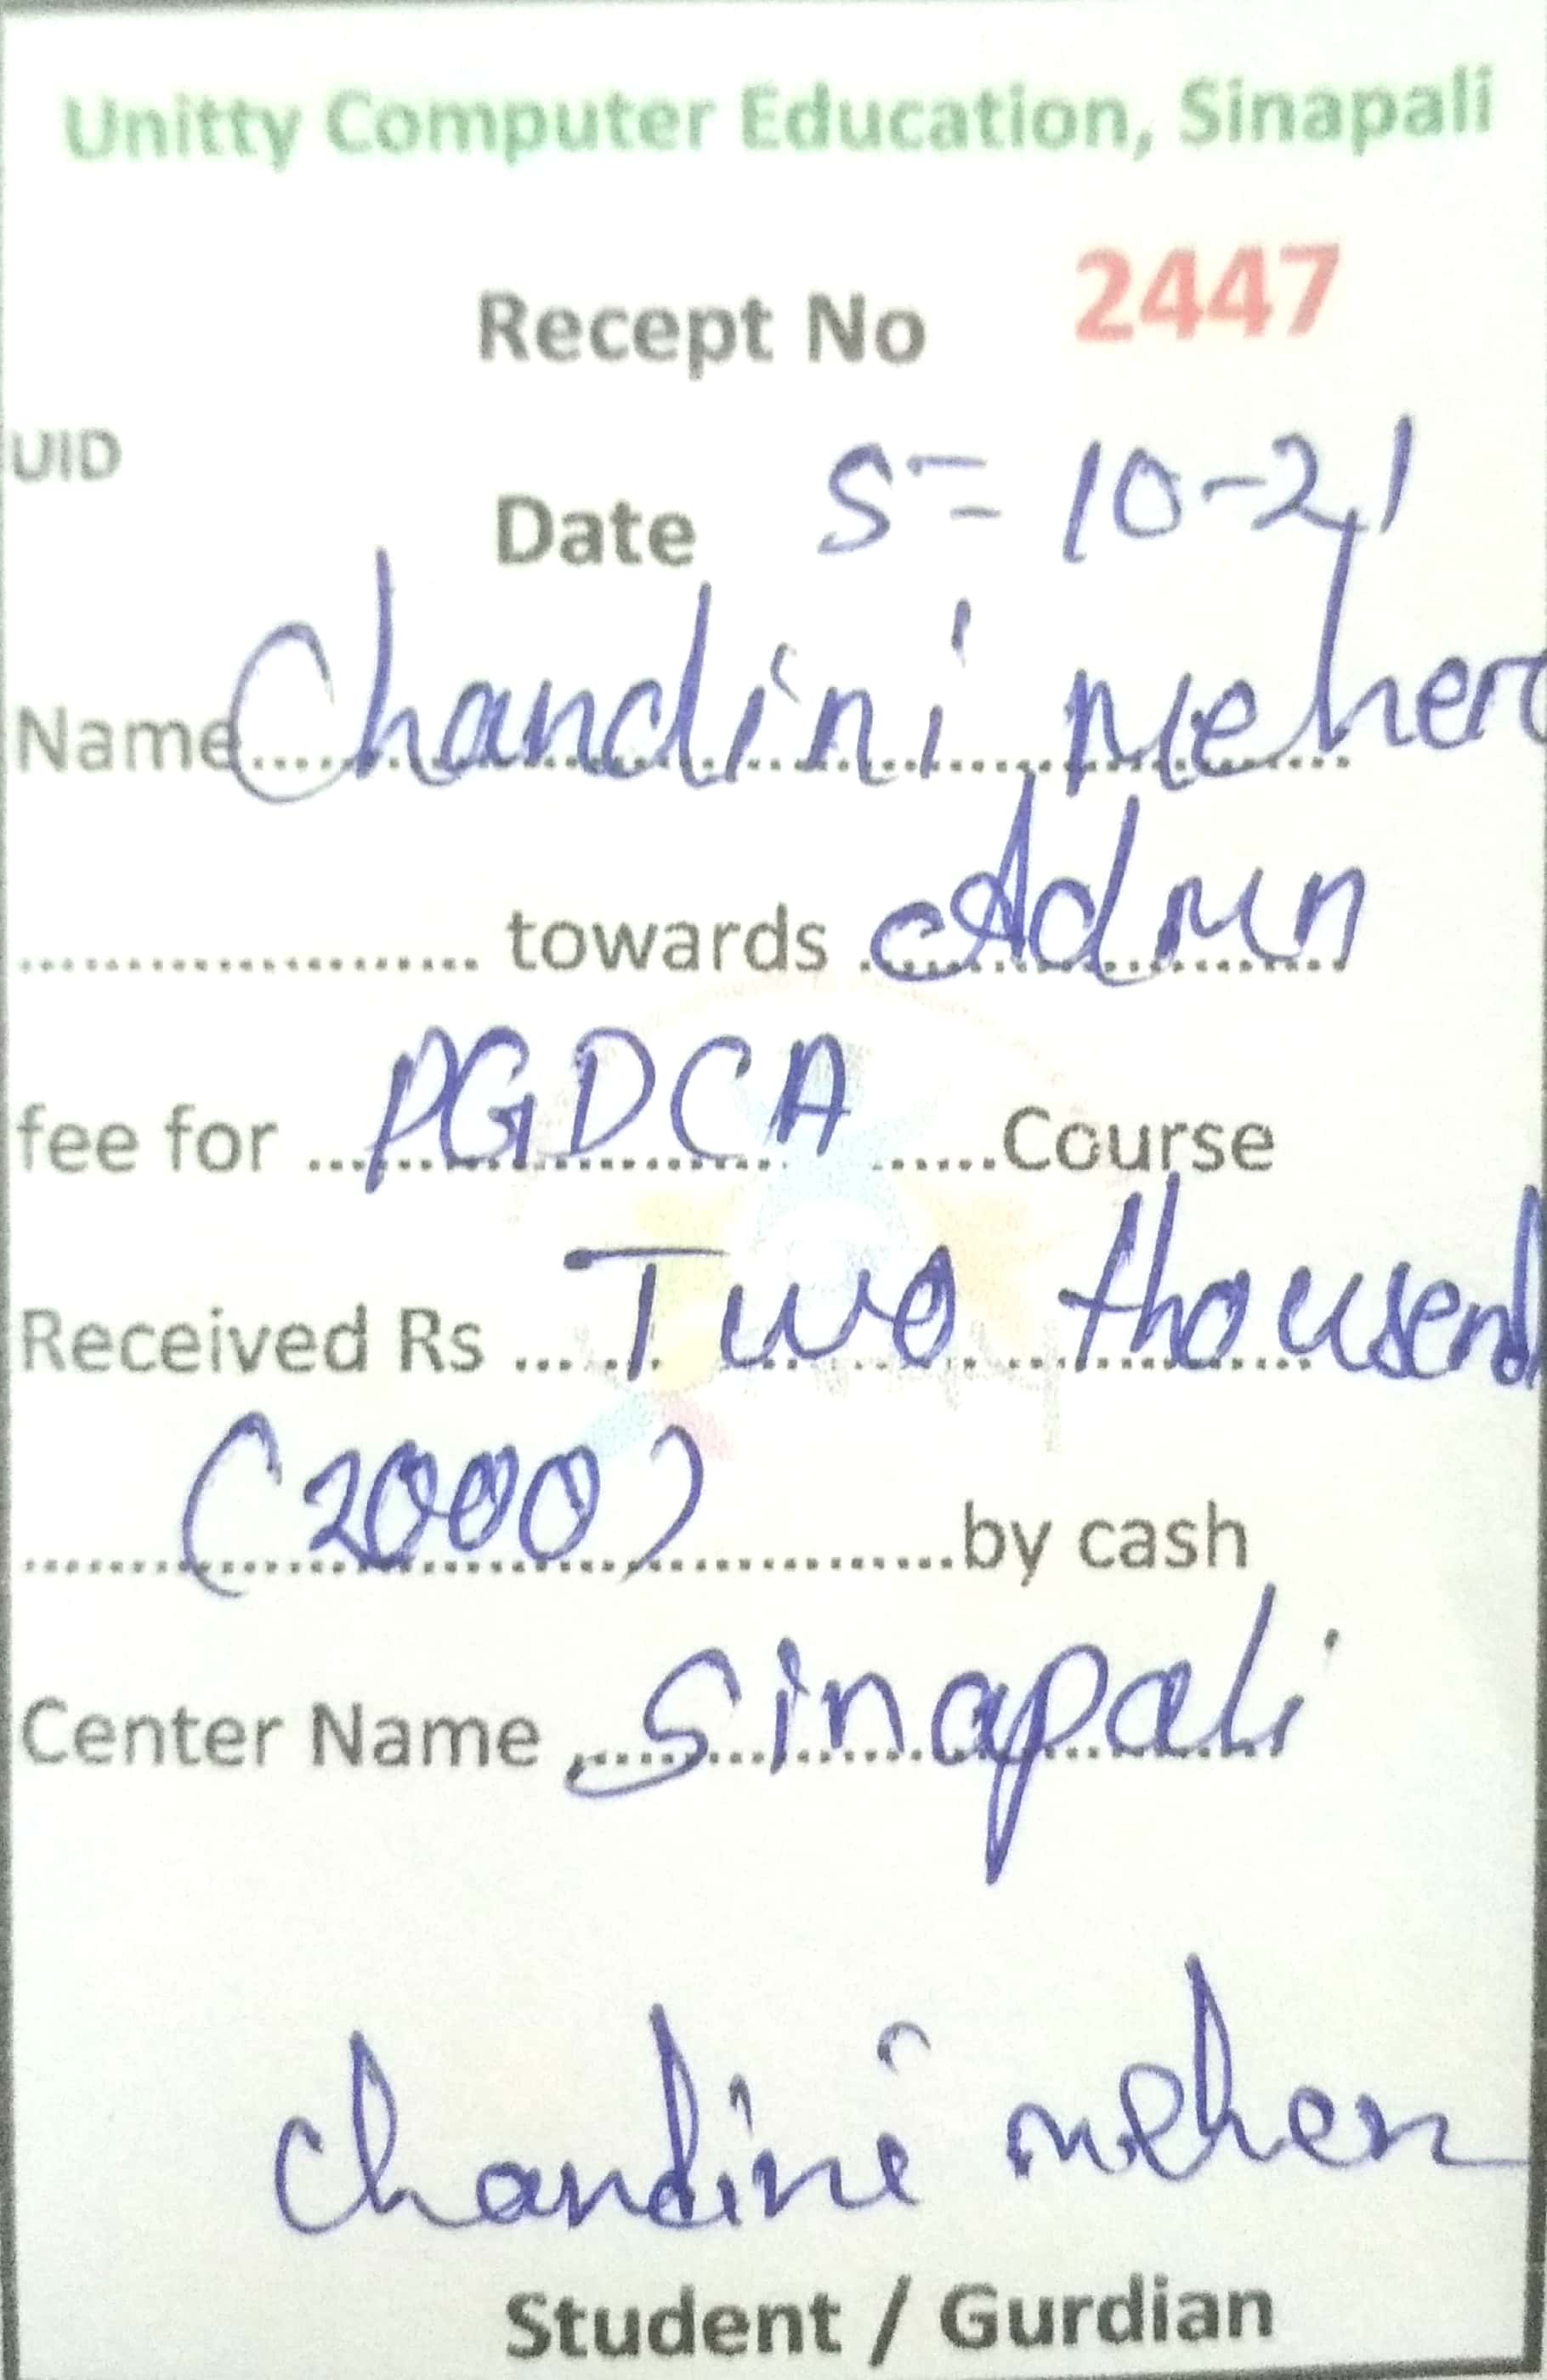 Unitty Computer Education, Sinapali
Recept No 2447
UID
Date 5-10-21
Name Chandini Meher
.................... towards Admn
fee for PGDCA Course
Received Rs Two thousend
(2000) by cash
Center Name Sinapali
Chandini meher
Student / Gurdian